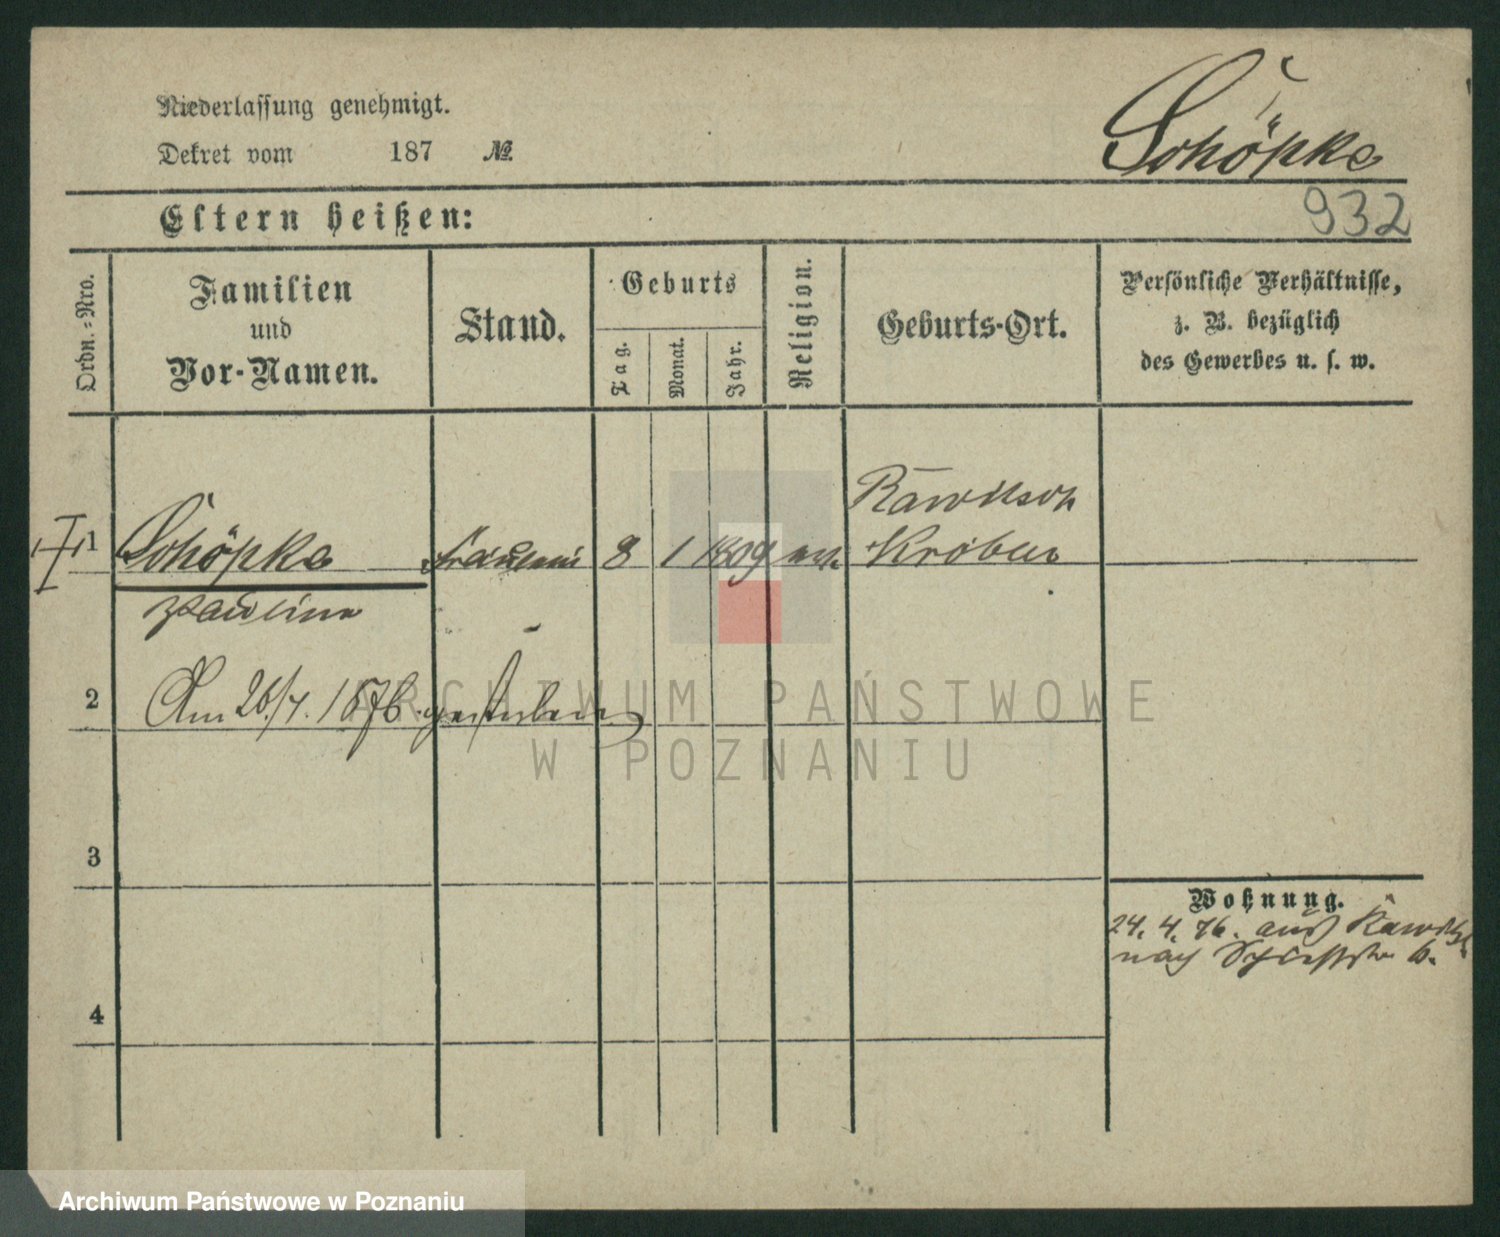 Niederlassung genehmigt.
Dekret vom 187 №
Schöpke
Eltern heißen:
932
Ordn.-Nro.
Familien
und
Vor-Namen.
Stand.
Geburts
Tag.
Monat.
Jahr.
Religion.
Geburts-Ort.
Persönliche Verhältnisse,
z. B. bezüglich
des Gewerbes u. s. w.
Rawitsch
1 Schöpke Fräulein 8 1 1809 Kröben
Pauline
2 Am 26/4. 1876 gestorben
ARCHIWUM PAŃSTWOWE
W POZNANIU
3
Wohnung.
24. 4. 76. aus Rawitsch
nach 6.
4
Archiwum Państwowe w Poznaniu